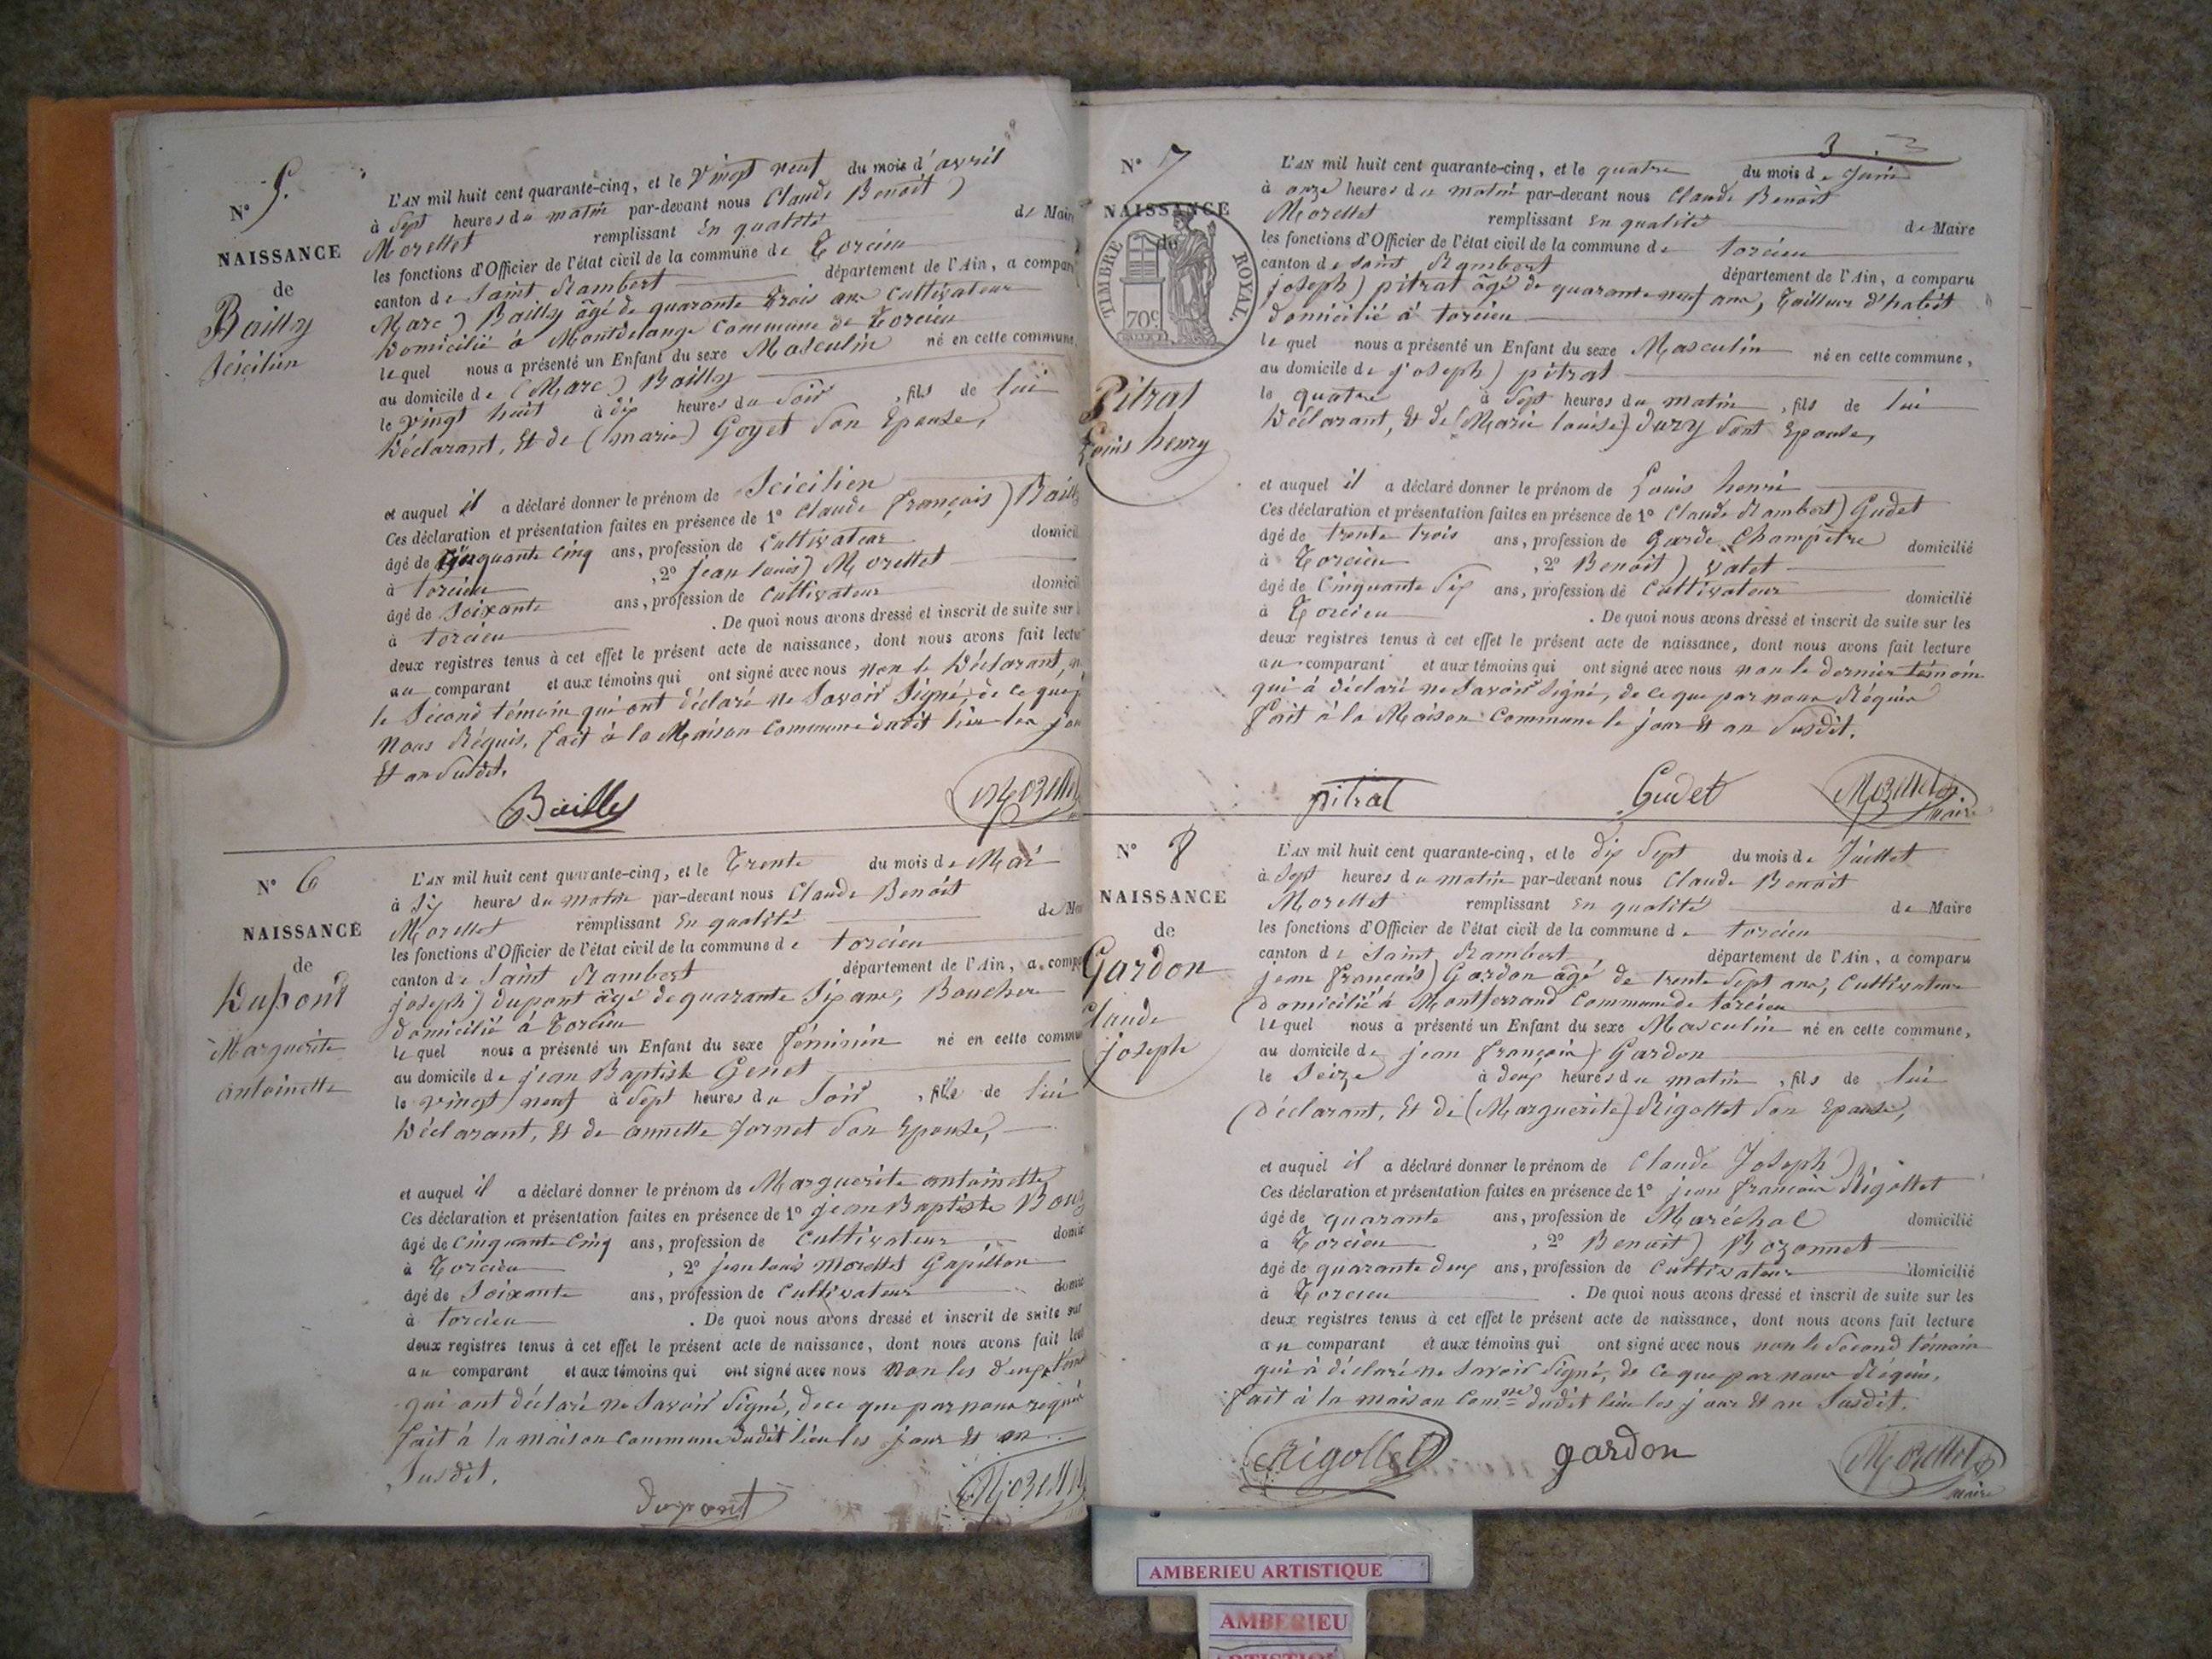 N° 5.
NAISSANCE
de
Bailly
Sicilien
L'AN mil huit cent quarante-cinq, et le vingt neuf du mois d'avril
à Sept heures du matin par-devant nous Claude Benoit)
Morettet remplissant En qualité de Maire
les fonctions d'Officier de l'état civil de la commune de Torcieu
canton de Saint Rambert département de l'Ain, a comparu
Marc) Bailly âgé de quarante trois ans Cultivateur
Domicilié à Montdelange Commune de Torcieu
lequel nous a présenté un Enfant du sexe Masculin né en cette commune,
au domicile de (Marc) Bailly
le vingt huit à dix heures du Soir , fils de lui
Déclarant, Et de (marie) Goyet Son Epouse,
et auquel il a déclaré donner le prénom de Scicilien
Ces déclaration et présentation faites en présence de 1° Claude français) Bailly
âgé de Cinquante cinq ans, profession de Cultivateur domicil
à torcieu , 2° jean louis) Morettet
âgé de Soixante ans, profession de Cultivateur domicil
à torcieu . De quoi nous avons dressé et inscrit de suite sur
deux registres tenus à cet effet le présent acte de naissance, dont nous avons fait lectu
au comparant et aux témoins qui ont signé avec nous non le Déclarant,
le Second témoin qui ont déclaré ne Savoir Signé, de ce que
Nous Réquis, fait à la Maison Commune dudit lieu les jour
Et an Susdit.
Bailly Morettet
N° 6
NAISSANCE
de
Dupont
Marguerite
antoinette
L'AN mil huit cent quarante-cinq, et le Trente du mois de Mai
à Six heures du matin par-devant nous Claude Benoit
Morettet remplissant En qualité de Mai
les fonctions d'Officier de l'état civil de la commune de torcieu
canton de Saint Rambert département de l'Ain, a comp
joseph) dupont âgé de quarante Six ans, Boucher
domicilié à Torcieu
lequel nous a présenté un Enfant du sexe féminin né en cette commu
au domicile de jean Baptiste Genet
le vingt neuf à Sept heures du Soir , fille de lui
Déclarant, Et de annette Jornet Son Epouse,
et auquel il a déclaré donner le prénom de Marguerite antoinette
Ces déclaration et présentation faites en présence de 1° jean Baptiste
âgé de Cinquante Cinq ans, profession de Cultivateur domic
à Torcieu , 2° jean louis Morettet Gapillon
âgé de Soixante ans, profession de Cultivateur domic
à torcieu . De quoi nous avons dressé et inscrit de suite sur
deux registres tenus à cet effet le présent acte de naissance, dont nous avons fait lect
au comparant et aux témoins qui ont signé avec nous Non les deux témo
qui ont déclaré ne Savoir Signé, de ce que par nous requis
fait à la maison commune dudit lieu les jour Et an
Susdit.
dupont Morettet
3
N° 7
NAISSANCE
de
TIMBRE ROYAL.
70c
Pitrat
Louis henry
L'AN mil huit cent quarante-cinq, et le quatre du mois de Juin
à onze heures du matin par-devant nous Claude Benoit
Morettet remplissant En qualité de Maire
les fonctions d'Officier de l'état civil de la commune de torcieu
canton de Saint Rambert département de l'Ain, a comparu
joseph) pitrat âgé de quarante neuf ans, Tailleur d'habit
domicilié à torcieu
lequel nous a présenté un Enfant du sexe Masculin né en cette commune,
au domicile de joseph) pitrat
le quatre à Sept heures du matin , fils de lui
Déclarant, Et de (Marie louise) Dury Sont Epouse,
et auquel il a déclaré donner le prénom de Louis henri
Ces déclaration et présentation faites en présence de 1° Claude Rambert) Gudet
âgé de trente trois ans, profession de Garde Champêtre domicilié
à Torcieu , 2° Benoit) valet
âgé de Cinquante Six ans, profession de Cultivateur domicilié
à Torcieu . De quoi nous avons dressé et inscrit de suite sur les
deux registres tenus à cet effet le présent acte de naissance, dont nous avons fait lecture
au comparant et aux témoins qui ont signé avec nous non le dernier témoin
qui à déclaré ne Savoir Signé, de ce que par nous Réquis
fait à la Maison Commune le jour Et an Susdit.
pitrat Gudet Morettet
maire
N° 8
NAISSANCE
de
Gardon
Claude
joseph
L'AN mil huit cent quarante-cinq, et le dix Sept du mois de Juillet
à Sept heures du matin par-devant nous Claude Benoit
Morettet remplissant En qualité de Maire
les fonctions d'Officier de l'état civil de la commune de torcieu
canton de Saint Rambert département de l'Ain, a comparu
jean français) Gardon âgé de trente Sept ans, Cultivateur
Domicilié à Montferrand Commune de torcieu
lequel nous a présenté un Enfant du sexe Masculin né en cette commune,
au domicile de jean françois) Gardon
le Seize à deux heures du matin , fils de lui
Déclarant, Et de (Marguerite) Rigottet Son Epouse,
et auquel il a déclaré donner le prénom de Claude Joseph)
Ces déclaration et présentation faites en présence de 1° jean françois Rigottet
âgé de quarante ans, profession de Maréchal domicilié
à Torcieu , 2° Benoit) Bozonnet
âgé de quarante deux ans, profession de Cultivateur domicilié
à Torcieu . De quoi nous avons dressé et inscrit de suite sur les
deux registres tenus à cet effet le présent acte de naissance, dont nous avons fait lecture
au comparant et aux témoins qui ont signé avec nous non le Second témoin
qui à déclaré ne Savoir Signé, de ce que par nous Réquis,
fait à la maison Comne dudit lieu les jour Et an Susdit.
Rigollet gardon Morettet
maire
AMBERIEU ARTISTIQUE
AMBERIEU
ARTISTIQUE